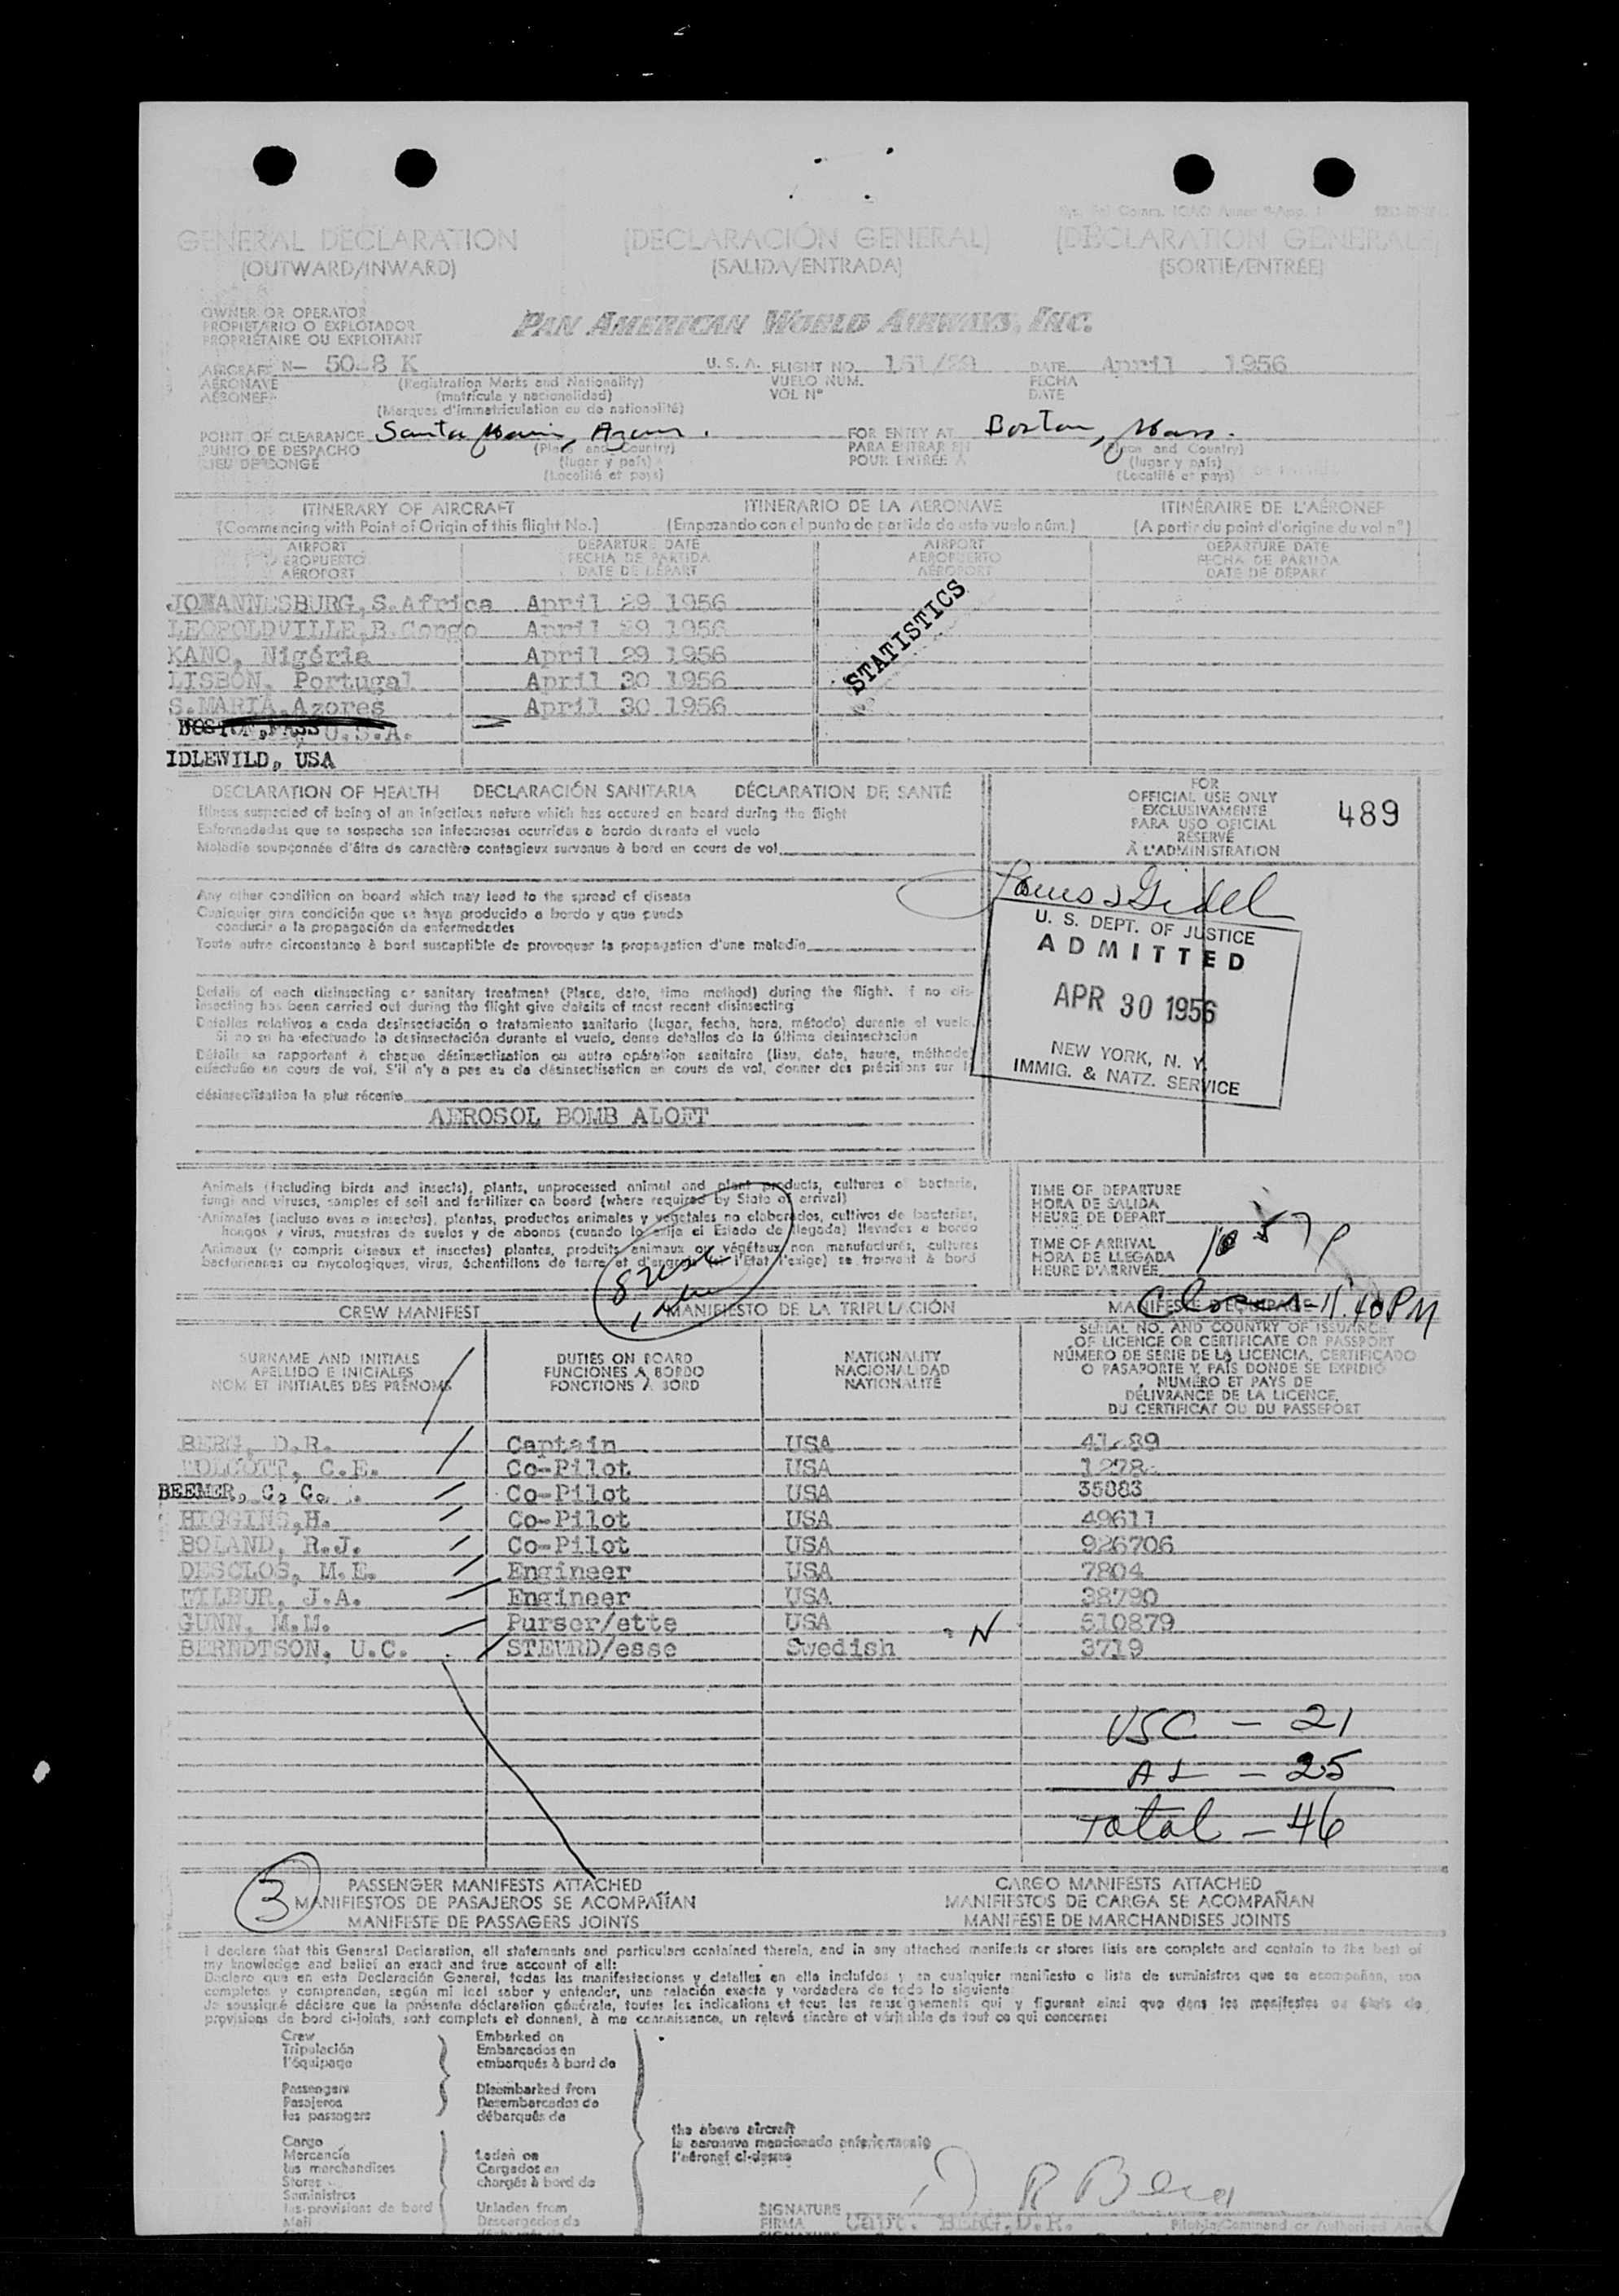 GENERAL DECLARATION
(OUTWARD/INWARD)
(DECLARACIÓN GENERAL)
(SALIDA/ENTRADA)
(DECLARATION GENERALE)
(SORTIE/ENTRÉE)
OWNER OR OPERATOR
PROPIETARIO O EXPLOTADOR
PROPRIÉTAIRE OU EXPLOITANT
PAN AMERICAN WORLD AIRWAYS, INC.
AIRCRAFT N- K U. S. A. FLIGHT NO. 151/ DATE April 1956
AERONAVE (Registration Marks and Nationality) VUELO NUM. FECHA
AÉRONEF (matrícula y nacionalidad) VOL Nº DATE
(Marques d'immatriculation ou de nationalité)
POINT OF CLEARANCE Santa Maria, Azores. FOR ENTRY AT Boston, Mass.
PUNTO DE DESPACHO (Place and Country) PARA ENTRAR EN (Place and Country)
LIEU DE CONGÉ (lugar y país) POUR ENTRÉE A (lugar y país)
(Localité et pays) (Localité et pays)
ITINERARY OF AIRCRAFT ITINERARIO DE LA AERONAVE ITINÉRAIRE DE L'AÉRONEF
(Commencing with Point of Origin of this flight No.) (Empezando con el punto de partida de este vuelo núm.) (A partir du point d'origine du vol nº)
AIRPORT DEPARTURE DATE AIRPORT DEPARTURE DATE
AEROPUERTO FECHA DE PARTIDA AEROPUERTO FECHA DE PARTIDA
AÉROPORT DATE DE DÉPART AÉROPORT DATE DE DÉPART
JOHANNESBURG, S.Africa April 29 1956
LEOPOLDVILLE, B.Congo April 29 1956
KANO, Nigéria April 29 1956
LISBON, Portugal April 30 1956
S.MARIA, Azores April 30 1956
BOSTON, MASS U.S.A.
IDLEWILD, USA
STATISTICS
DECLARATION OF HEALTH DECLARACIÓN SANITARIA DÉCLARATION DE SANTÉ
Illness suspected of being of an infectious nature which has occured on board during the flight
Enfermedades que se sospecha son infecciosas ocurridas a bordo durante el vuelo
Maladie soupçonnée d'être de caractère contagieux survenue à bord en cours de vol
FOR
OFFICIAL USE ONLY
EXCLUSIVAMENTE
PARA USO OFICIAL
RÉSERVÉ
À L'ADMINISTRATION
489
Any other condition on board which may lead to the spread of disease
Cualquier otra condición que se haya producido a bordo y que pueda
conducir a la propagación de enfermedades
Toute autre circonstance à bord susceptible de provoquer la propagation d'une maladie
U. S. DEPT. OF JUSTICE
ADMITTED
APR 30 1956
NEW YORK, N. Y.
IMMIG. & NATZ. SERVICE
Details of each disinsecting or sanitary treatment (Place, date, time method) during the flight. If no dis-
insecting has been carried out during the flight give details of most recent disinsecting
Detalles relativos a cada desinsectación o tratamiento sanitario (lugar, fecha, hora, método) durante el vuelo.
Si no se ha efectuado la desinsectación durante el vuelo, dense detalles de la última desinsectación
Détails se rapportant à chaque désinsectisation ou autre opération sanitaire (lieu, date, heure, méthode)
effectuée en cours de vol. S'il n'y a pas eu de désinsectisation en cours de vol, donner des précisions sur la
désinsectisation la plus récente
AEROSOL BOMB ALOFT
Animals (including birds and insects), plants, unprocessed animal and plant products, cultures of bacteria,
fungi and viruses, samples of soil and fertilizer on board (where required by State of arrival)
Animales (incluso aves e insectos), plantas, productos animales y vegetales no elaborados, cultivos de bacterias,
hongos y virus, muestras de suelos y de abonos (cuando lo exija el Estado de llegada) llevados a bordo
Animaux (y compris oiseaux et insectes) plantes, produits animaux ou végétaux non manufacturés, cultures
bactériennes ou mycologiques, virus, échantillons de terre et d'engrais (si l'Etat l'exige) se trouvant à bord
TIME OF DEPARTURE
HORA DE SALIDA
HEURE DE DEPART
TIME OF ARRIVAL
HORA DE LLEGADA
HEURE D'ARRIVÉE
10 57 P
Closes - 11.40 PM
CREW MANIFEST MANIFIESTO DE LA TRIPULACIÓN MANIFESTE D'EQUIPAGE
SURNAME AND INITIALS
APELLIDO E INICIALES
NOM ET INITIALES DES PRÉNOMS
DUTIES ON BOARD
FUNCIONES A BORDO
FONCTIONS À BORD
NATIONALITY
NACIONALIDAD
NATIONALITÉ
SERIAL NO. AND COUNTRY OF ISSUANCE
OF LICENCE OR CERTIFICATE OR PASSPORT
NÚMERO DE SERIE DE LA LICENCIA, CERTIFICADO
O PASAPORTE Y PAÍS DONDE SE EXPIDIÓ
NUMÉRO ET PAYS DE
DÉLIVRANCE DE LA LICENCE,
DU CERTIFICAT OU DU PASSEPORT
BERG, D.R. Captain USA
C.E. Co-Pilot USA
BEEMER, C. C. Co-Pilot USA 35083
HIGGINS, H. Co-Pilot USA 49611
BOLAND, R.J. Co-Pilot USA 926706
DESCLOS, M.E. Engineer USA 7804
WILBUR, J.A. Engineer USA 38790
GUNN, M.M. Purser/ette USA 510879
BERNDTSON, U.C. STEWRD/esse Swedish N 3719
USC - 21
AL - 25
Total - 46
3
PASSENGER MANIFESTS ATTACHED CARGO MANIFESTS ATTACHED
MANIFIESTOS DE PASAJEROS SE ACOMPAÑAN MANIFIESTOS DE CARGA SE ACOMPAÑAN
MANIFESTE DE PASSAGERS JOINTS MANIFESTE DE MARCHANDISES JOINTS
I declare that this General Declaration, all statements and particulars contained therein, and in any attached manifests or stores lists are complete and contain to the best of
my knowledge and belief an exact and true account of all:
Declaro que en esta Declaración General, todas las manifestaciones y detalles en ella incluídos y en cualquier manifiesto o lista de suministros que se acompañan, son
completos y comprenden, según mi leal saber y entender, una relación exacta y verdadera de todo lo siguiente:
Je soussigné déclare que la présente déclaration générale, toutes les indications et tous les renseignements qui y figurent ainsi que dans les manifestes ou états de
provisions de bord ci-joints, sont complets et donnent, à ma connaissance, un relevé sincère et véritable de tout ce qui concerne:
Crew Embarked on
Tripulación Embarcados en
l'équipage embarqués à bord de
Passengers Disembarked from
Pasajeros Desembarcados de
les passagers débarqués de
the above aircraft
la aeronave mencionada anteriormente
l'aéronef ci-dessus
Cargo
Mercancía Laden on
les marchandises Cargados en
Stores chargés à bord de
Suministros
les provisions de bord Unladen from
Mail Descargados de
D R Berg
SIGNATURE
FIRMA Capt. BERG, D.R.